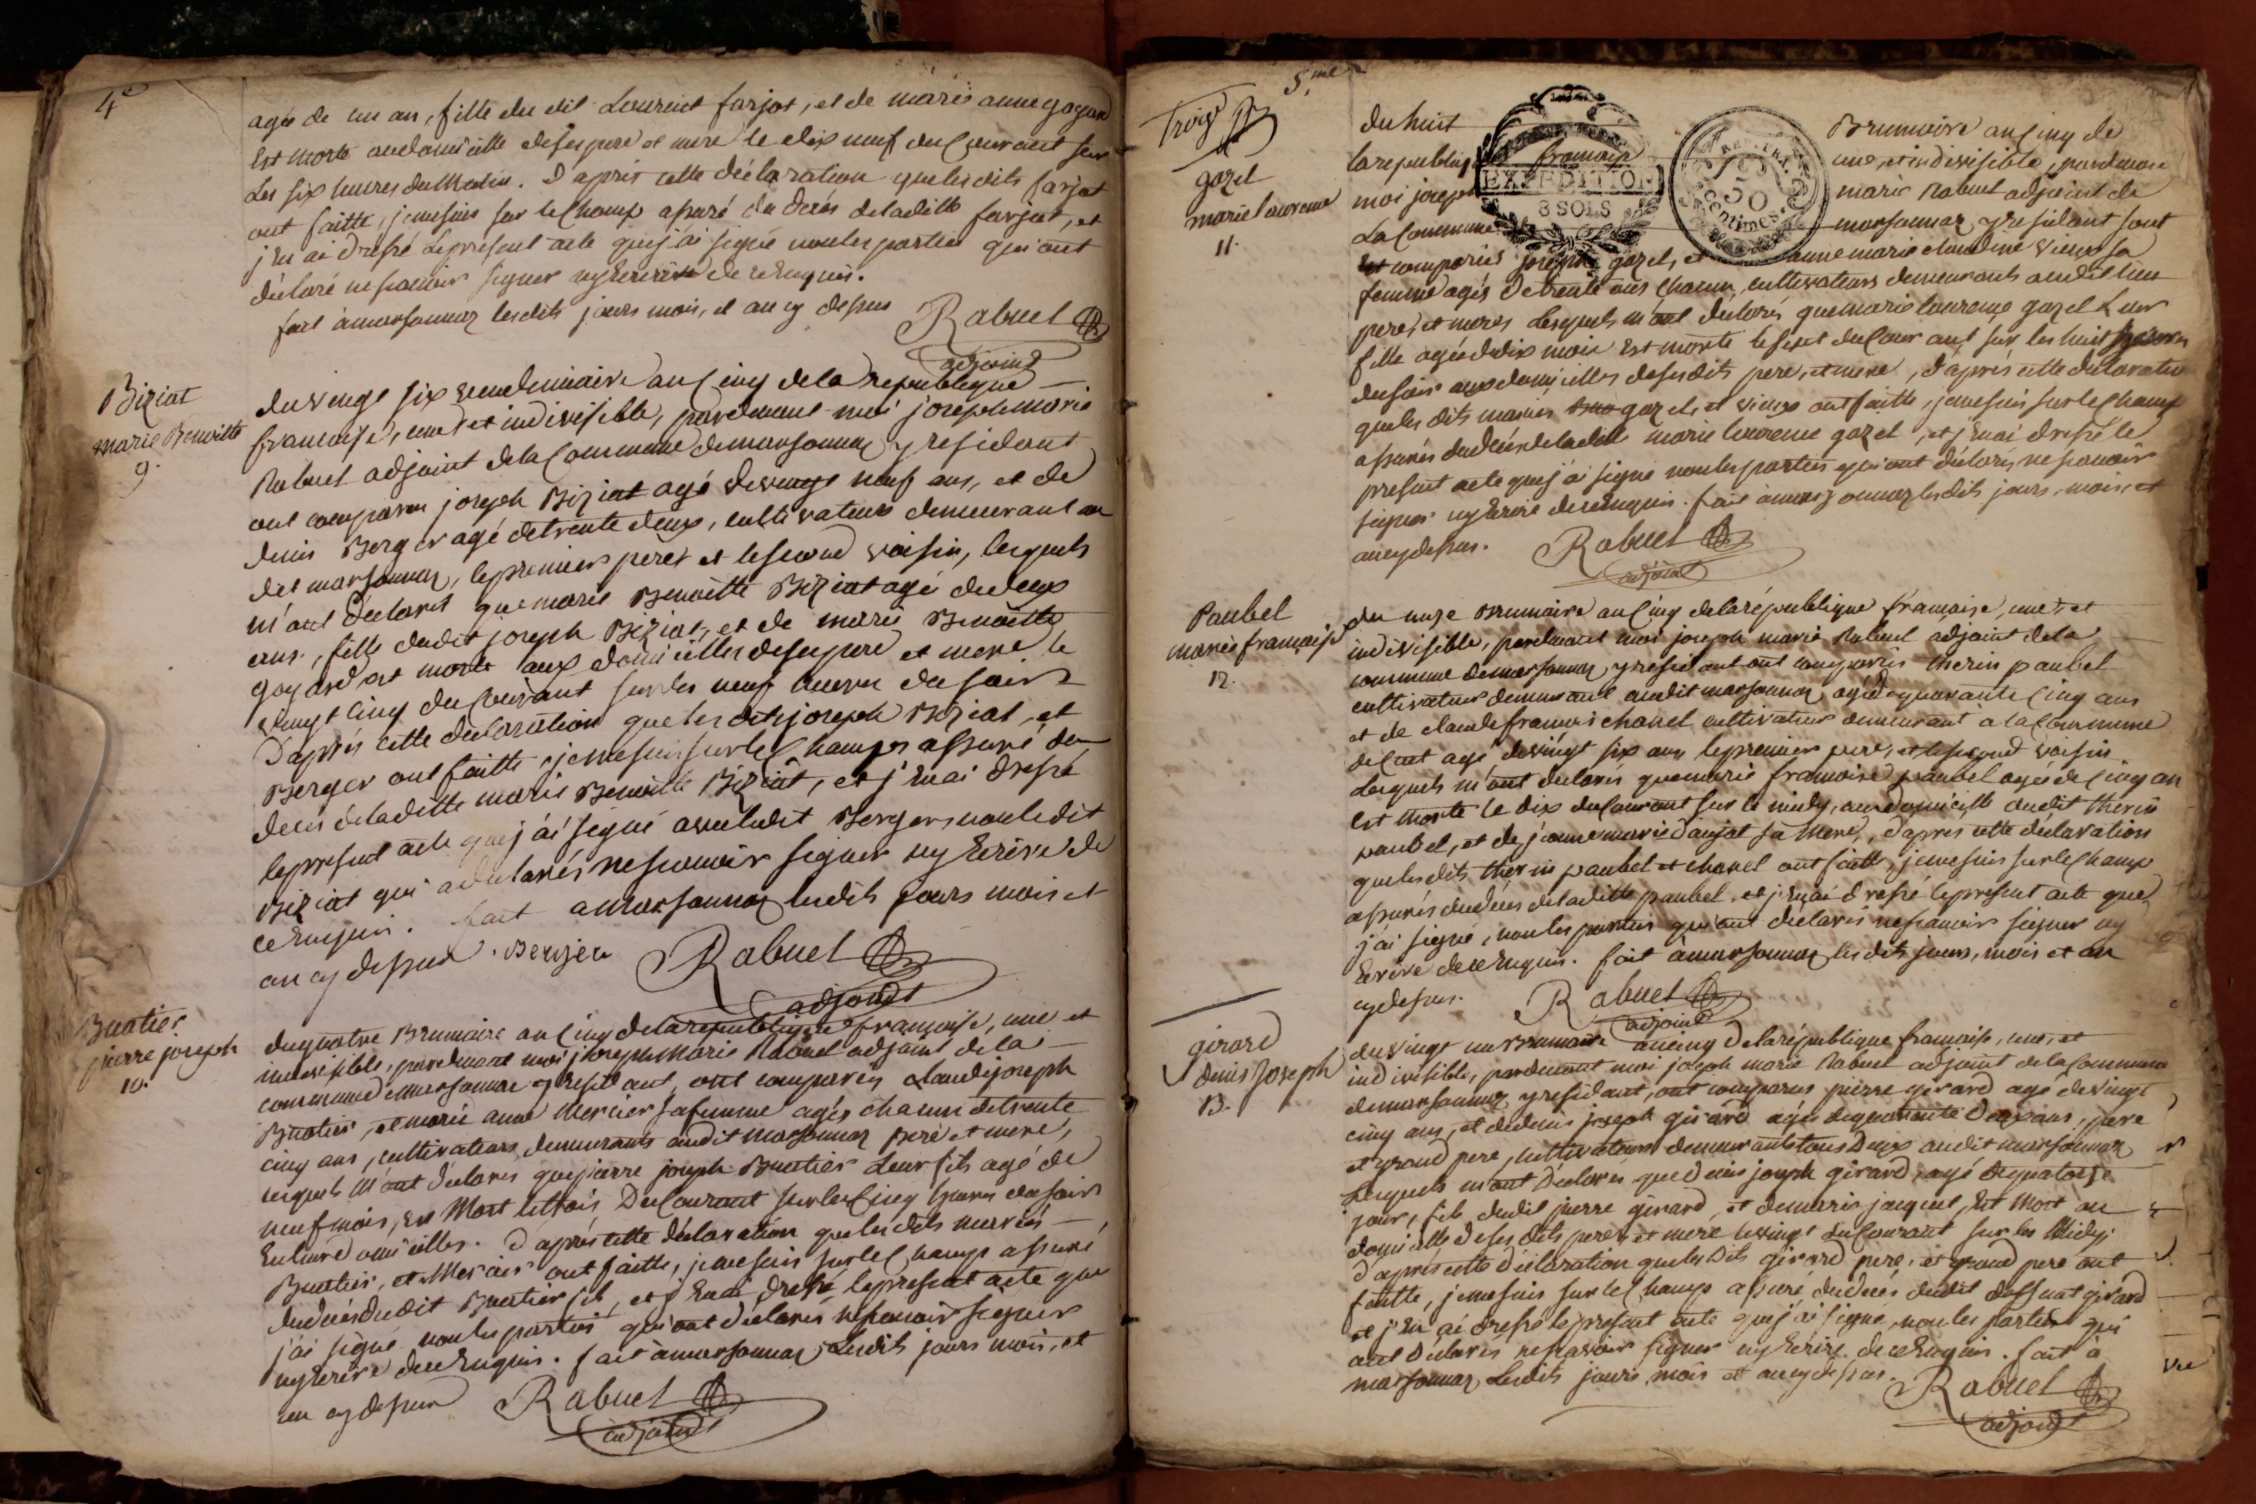 4e
agée de un an, fille du dit Laurent farjot, et de marie anne goyard
Est morte audomicille desespere et mere le dix neuf du Courant sur
Les six heures duMatin. D'après cette déclaration que lesdits farjot
ont faitte, jemesuis sur leChamp assuré du deces deladitte farjot, et
j'en ai dressé Lepresent acte quej'ai signé nonles parties qui ont
déclaré nesavoir signer nyEcrire de ceEnquis.
fait àmarsonnaz lesdits jours mois, et an cy dessus
Rabuel
adjoint
Biziat
marie Benoitte
9.
duvingt six vendemiaire an Cinq dela Republique
francoise, une et indivisible, pardevant moi joseph Marie
Rabuel adjoint dela Commune demarsonnaz y residant
ont comparu joseph Biziat agé devingt neuf ans, et de
denis Berger agé detrente deux, cultivateurs demeurant au
dit marsonnaz, lepremier pere et lesecond voisin, lesquels
m'ont déclaré que marie Benoitte Biziat agé dedeux
ans, fille dudit joseph Biziat, et de marie Benoitte
Goyard est morte aux domicilles desespere et mere le
vingt cinq duCourant sur les neuf heures du soir
D'après cette déclaration que les dits joseph Biziat, et
Berger ont faitte, jemesuis sur le Champs assuré du
deces deladitte marie Benoitte Biziat, et j'Enai dressé
lepresent acte quej'ai signé avecledit Berger nonledit
Biziat qui adeclarés nesavoir signer ny Ecrire de
ceEnquis. fait amarsonnaz lesdits jours mois et
an cy dessus. Berger
Rabuel
adjoint
Buatier
pierre joseph
10.
duquatre Brumaire an Cinq delarepublique françoise, une et
indivisible, pardevant moi joseph Marie Rabuel adjoint dela
commune demarsonnaz y residant, ont comparés Claudejoseph
Buatier, et marie anne Mercier safemme agés chacun detrente
cinq ans, cultivateurs demeurants audit Marsonnaz pere et mere,
lesquels M'ont déclarés quepierre joseph Buatier Leur fils agé de
neufmois, Est Mort letrois Du Courant sur les Cinq heures dusoir
Enleurs domicilles. D'après cette déclaration que lesdits mariés
Buatier, et Mercier ont faitte, jemesuis sur leChamp assuré
dudeces dudit Buatier fils, et j'Enai dressé lepresent acte que
j'ai signé nonles parties qui ont déclarés nesavoir signer
nyEcrire deceEnquis. fait amarsonnaz Lesdits jours mois, et
an cy dessus
Rabuel
adjoint
5.me
gazel
marie laurence
11.
du huit Brumaire anCinq de
larepublique françoise une, et indivisible, pardevant
EXPEDITION
3 SOLS
50
Centimes.
moi joseph marie Rabuel adjoint de
La Commune marsonnaz y residant sont
comparus joseph gazel, et anne marie claudine vieux sa
femme agés detrente ans chacun, cultivateurs demeurants audit lieu
peres, et meres Lesquels m'ont déclarés quemarie laurence gazel Leur
fille agée dedix mois Est morte lesept duCourant sur les huit heures
dusoir aux domicilles desesdits pere, et mere, d'après cette déclaration
queles dits mariés gazel, et vieux ont faitte, jemesuis sur leChamp
assurés dudécés deladitte marie laurence gazel, et j'Enai dressé le
present acte quej'ai signé nonles parties qui ont déclarés nesavoir
signer nyEcrire deceEnquis. fait àmarsonnaz lesdits jours, mois, et
ancydessus.
Rabuel
adjoint
Paubel
marie françoise
12.
du onze Brumaire an Cinq delarépublique françoise, une, et
indivisible, pardevant moi joseph marie Rabuel adjoint dela
commune demarsonnaz y residant ont comparus therin paubel
cultivateur demeurant audit marsonnaz agé dequarante Cinq ans
et de claudefrancois chanel cultivateur demeurant à la Commune
agé devingt six ans lepremier pere, et lesecond voisin
Lesquels m'ont déclarés quemarie françoise paubel agée deCinq an
Est Morte le dix duCourant sur le midy, audomicille dudit therin
paubel, et dejeanne marie Daujat sa mere, d'après cette déclaration
quelesdits therin paubel et chanel ont faitte, jemesuis sur leChamp
assurés dudécés deladitte paubel, et j'Enai dressé lepresent acte que
j'ai signé, nonles parties qui ont déclarés nesavoir signer ny
Ecrire deceEnquis. fait àmarsonnaz les dits jours, mois et an
cydessus.
Rabuel
adjoint
girard
denis Joseph
13.
duvingt un Brumaire ancinq Delarépublique françoise, une, et
indivisible, pardevant moi joseph marie Rabuel adjoint dela Commune
demarsonnaz yresidant, ont comparus pierre girard agé devingt
cinq ans, et dedenis joseph girard agé dequarante Deux ans, pere
et grand pere, cultivateurs demeurants tous Deux audit marsonnaz
Lesquels mont Déclarés quedenis joseph girard, agé dequatorze
jour, fils dudit pierre girard, et demarie janguel, Est Mort au
domicille deses dits pere, et mere levingt duCourant sur les Midy.
d'après cette déclaration queles Dits girard pere, et grand pere ont
faitte, jemesuis sur leChamps assuré dudécés dudit deffunt girard
et j'En ai dressé lepresent acte quej'ai signé, nonles parties qui
ont Déclarés nesavoir signer ny Ecrire deceEnquis. fait à
marsonnaz Lesdits jours mois et ancydessus.
Rabuel
adjoint